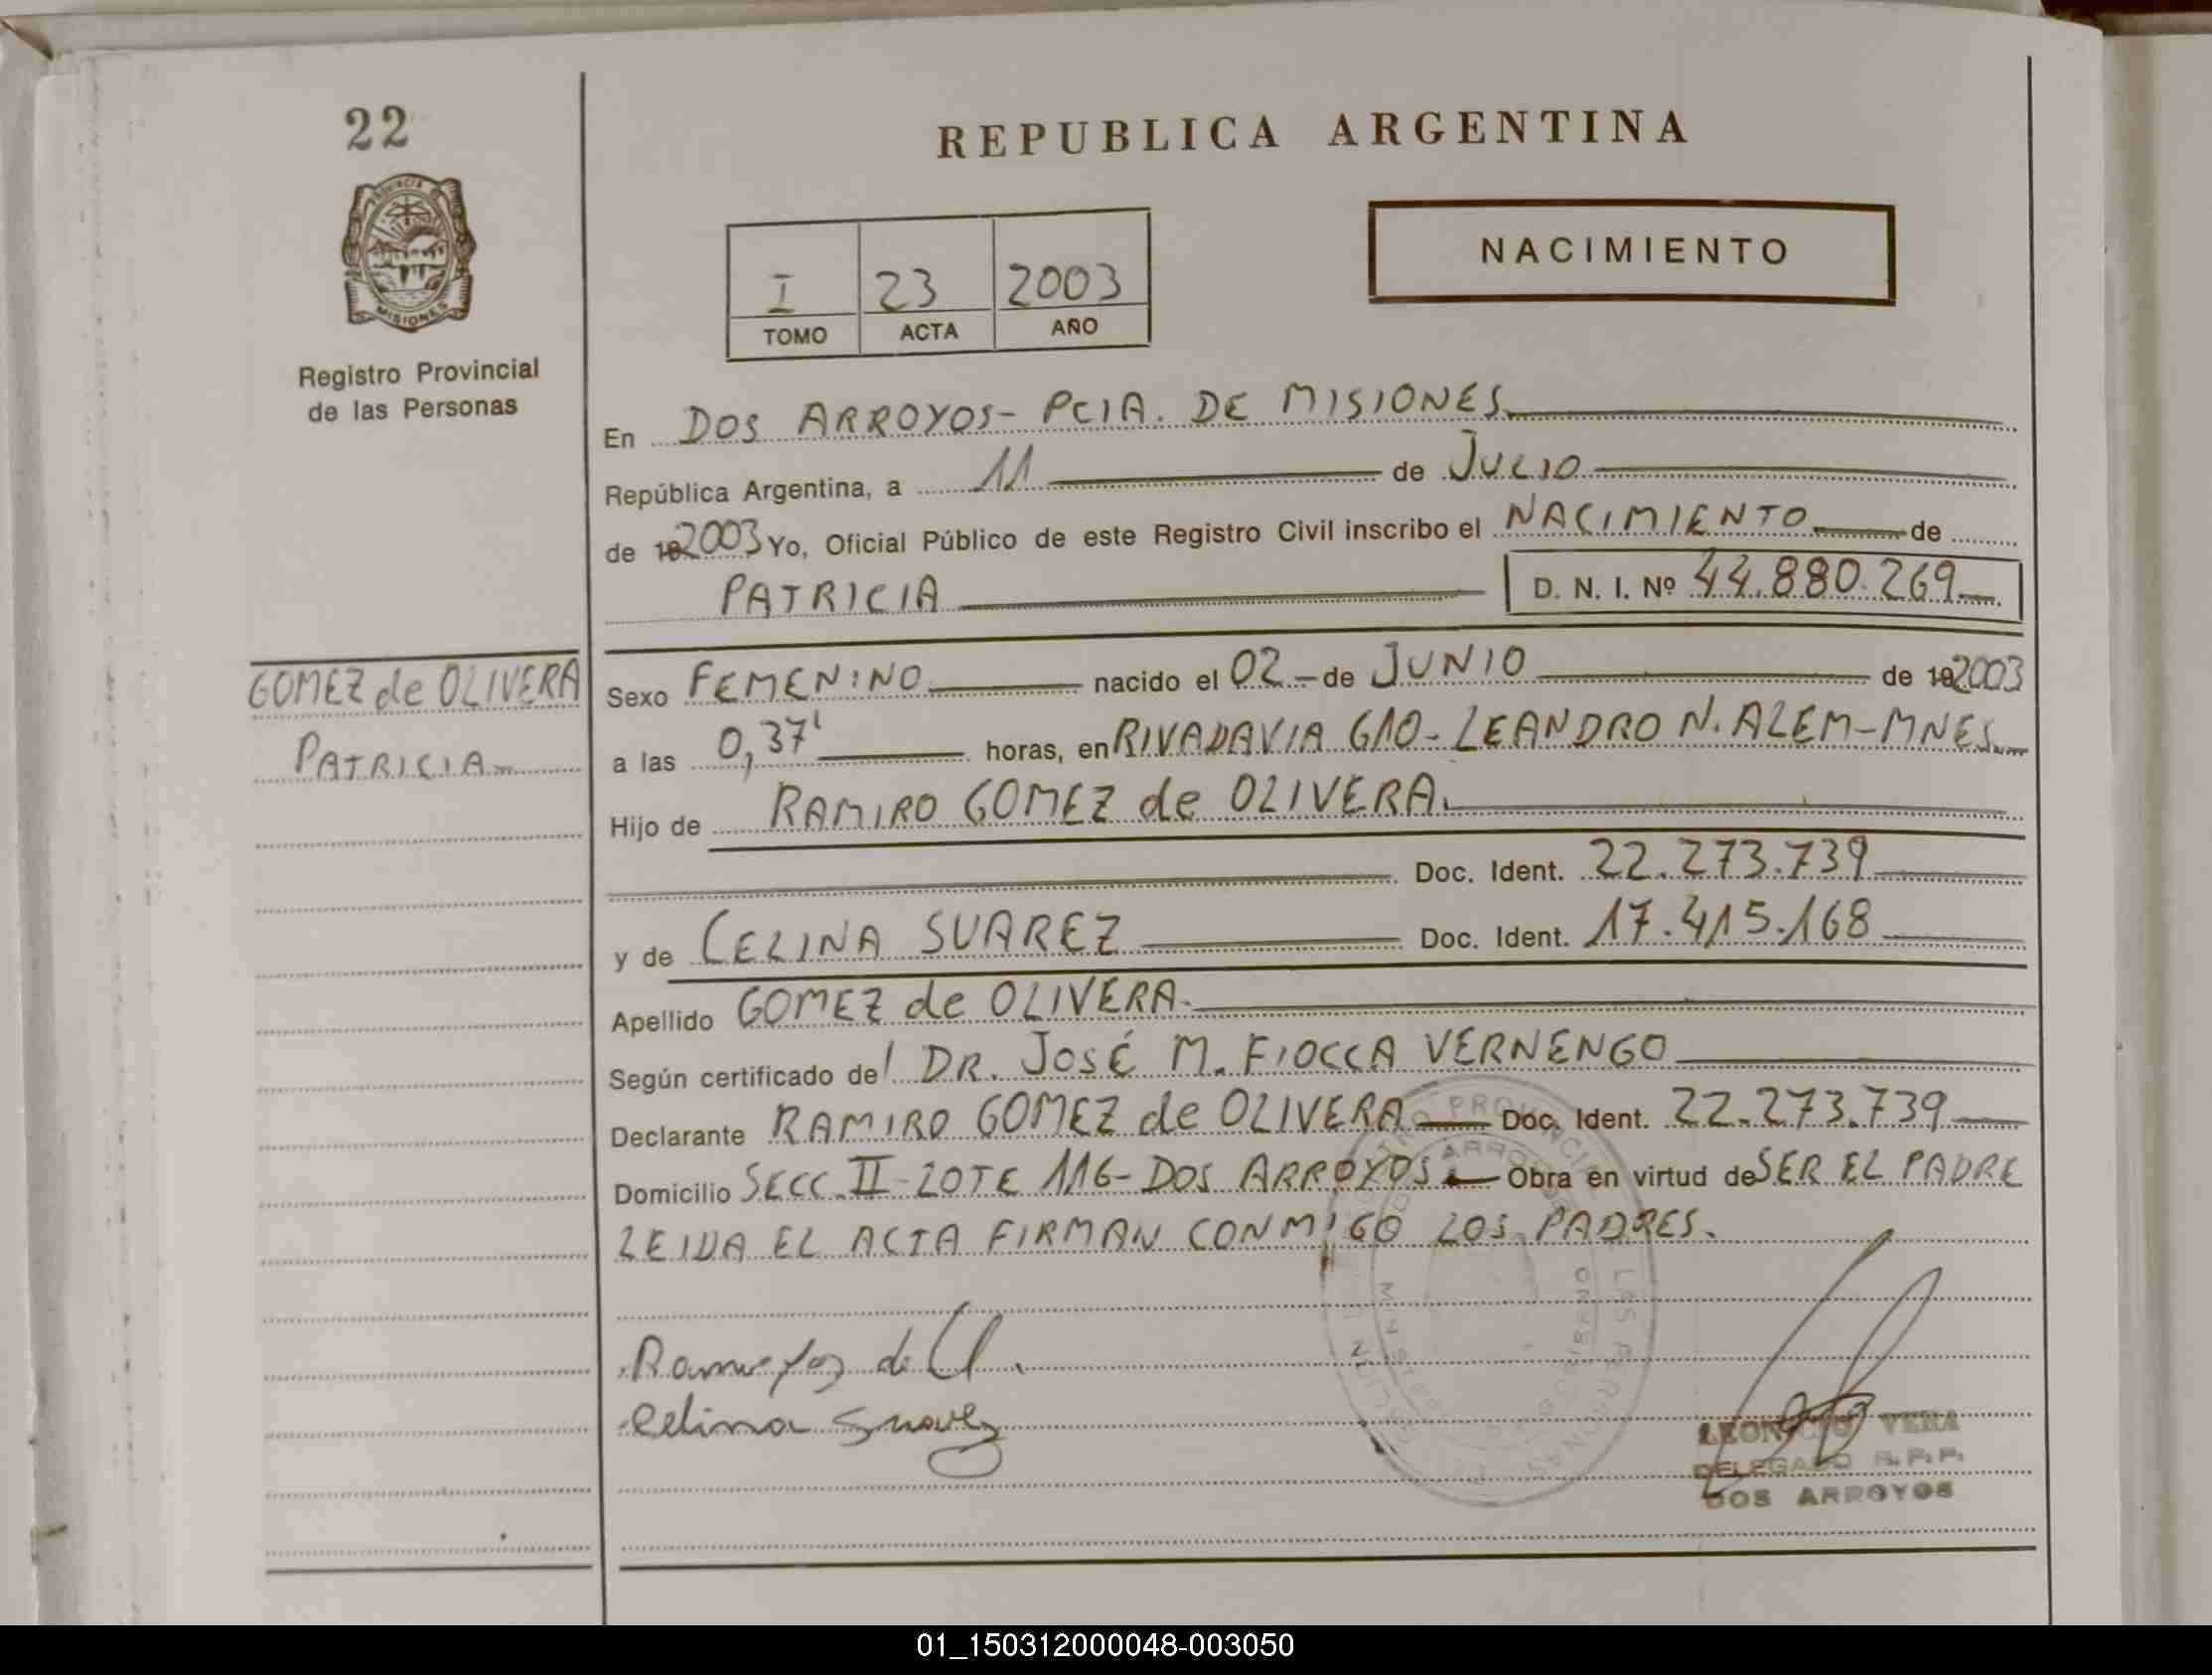 22
PROVINCIA DE
MISIONES
Registro Provincial
de las Personas
REPUBLICA ARGENTINA
NACIMIENTO
I 23 2003
TOMO ACTA AÑO
En DOS ARROYOS- PCIA. DE MISIONES
República Argentina, a 11 de JULIO
de 192003 Yo, Oficial Público de este Registro Civil inscribo el NACIMIENTO de
PATRICIA D. N. I. Nº 44.880.269
GOMEZ de OLIVERA
PATRICIA
Sexo FEMENINO nacido el 02 de JUNIO de 192003
a las 0,37' horas, en RIVADAVIA 610- LEANDRO N. ALEM-MNES
Hijo de RAMIRO GOMEZ de OLIVERA.
Doc. Ident. 22.273.739
y de CELINA SUAREZ Doc. Ident. 17.415.168
Apellido GOMEZ de OLIVERA.
Según certificado del DR. JOSÉ M. FIOCCA VERNENGO
Declarante RAMIRO GOMEZ de OLIVERA Doc. Ident. 22.273.739
Domicilio SECC. II-LOTE 116-DOS ARROYOS. Obra en virtud de SER EL PADRE
LEIDA EL ACTA FIRMAN CONMIGO LOS PADRES.
Celina Suarez
VERA
DELEGADO R.P.P.
DOS ARROYOS
01_150312000048-003050